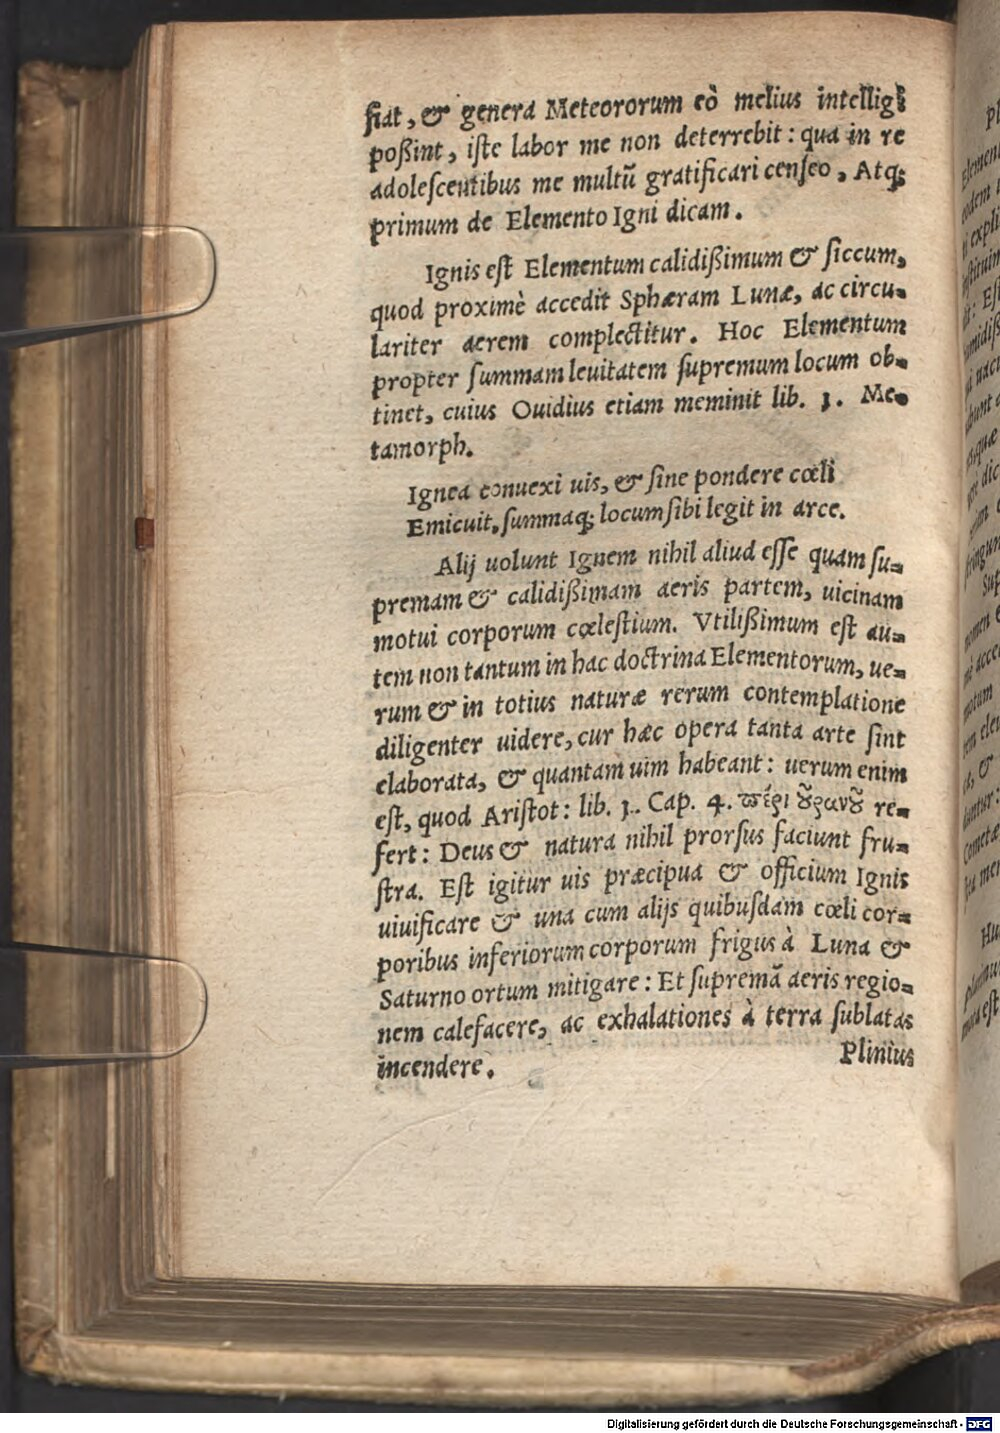 fiat, & genera Meteororum eò melius intelligi
poßint, iſte labor me non deterrebit: qua in re
adoleſcentibus me multū gratificari cenſeo, Atq;
primum de Elemento Igni dicam.
Ignis eſt Elementum calidißimum & ſiccum,
quod proximè accedit Sphæram Lunæ, ac circu-
lariter aerem complectitur. Hoc Elementum
propter ſummam leuitatem ſupremum locum ob-
tinet, cuius Ouidius etiam meminit lib. 1. Me-
tamorph.
Ignea conuexi uis, & ſine pondere cœli
Emicuit, ſummaq; locum ſibi legit in arce.
Alij uolunt Ignem nihil aliud eſſe quam ſu-
premam & calidißimam aeris partem, uicinam
motui corporum cœleſtium. Vtilißimum eſt au-
tem non tantum in hac doctrina Elementorum, ue-
rum & in totius naturæ rerum contemplatione
diligenter uidere, cur hæc opera tanta arte ſint
elaborata, & quantam uim habeant: uerum enim
eſt, quod Ariſtot: lib. 1. Cap. 4. περὶ ȣρανȣ re-
fert: Deus & natura nihil prorſus faciunt fru-
ſtra. Eſt igitur uis præcipua & officium Ignis
uiuificare & una cum alijs quibuſdam cœli cor-
poribus inferiorum corporum frigus à Luna &
Saturno ortum mitigare: Et ſupremā aeris regio-
nem calefacere, ac exhalationes à terra ſublatas
incendere.
Plinius
Digitalisierung gefördert durch die Deutsche Forschungsgemeinschaft - DFG